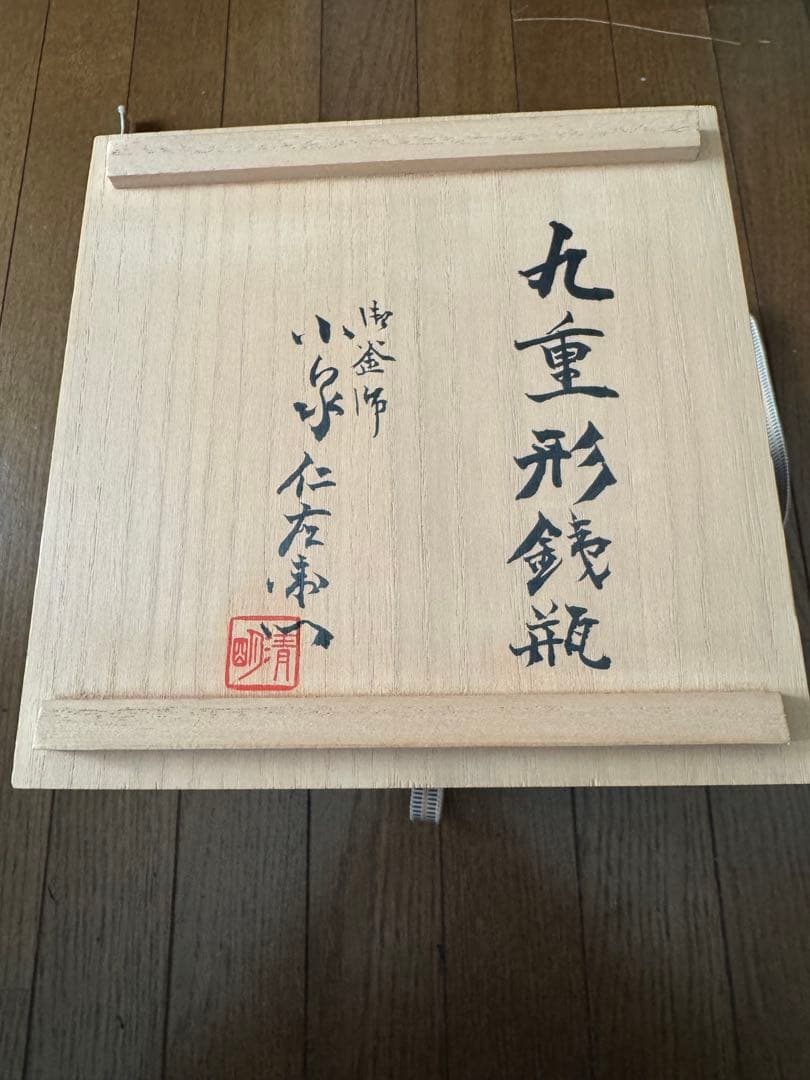 九重形銕瓶
御釜師
小泉仁左衛門
清